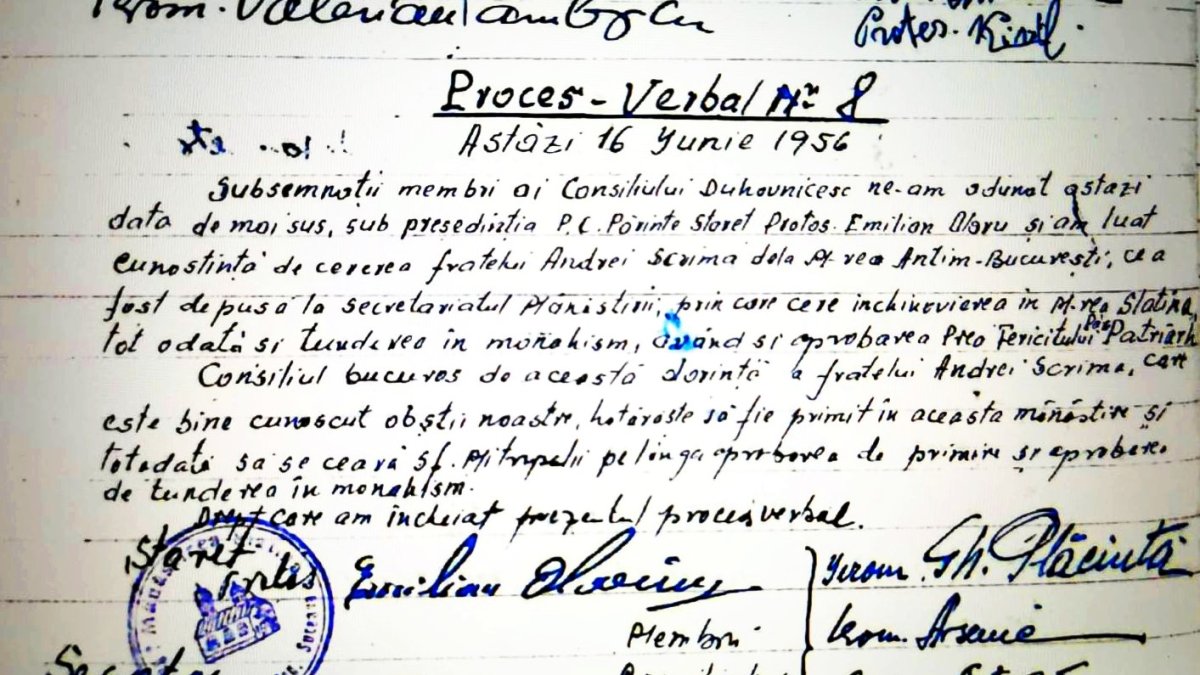 Ierom. Valerian
Protos. Kiril
Proces-Verbal Nr 8
Astăzi 16 Yunie 1956
Subsemnații membri ai Consiliului Duhovnicesc ne-am adunat astazi
data de mai sus, sub președintia P.C. Părinte Staret Protos. Emilian Olaru și am luat
cunostintă de cererea fratelui Andrei Scrima dela M-rea Antim-București, ce a
fost depusă la secretariatul Mănăstirii, prin care cere inchinovierea in M-rea Slatina,
tot odată si tunderea in monahism, având si aprobarea Prea Fericitului Patriarh
Consiliul bucuros de această dorintă a fratelui Andrei Scrima, care
este bine cunoscut obștii noastre, hotăraste să fie primit în aceasta mănăstire și
totodată sa se ceară Sf. Mitropolii pe langa aprobarea de primire și aprobarea
de tunderea în monahism.
Drept care am încheiat prezentul proces verbal.
Staret
Protos Emilian Olaru
Membrii
Yerom. Gh. Plăcintă
Ierom. Arsenie